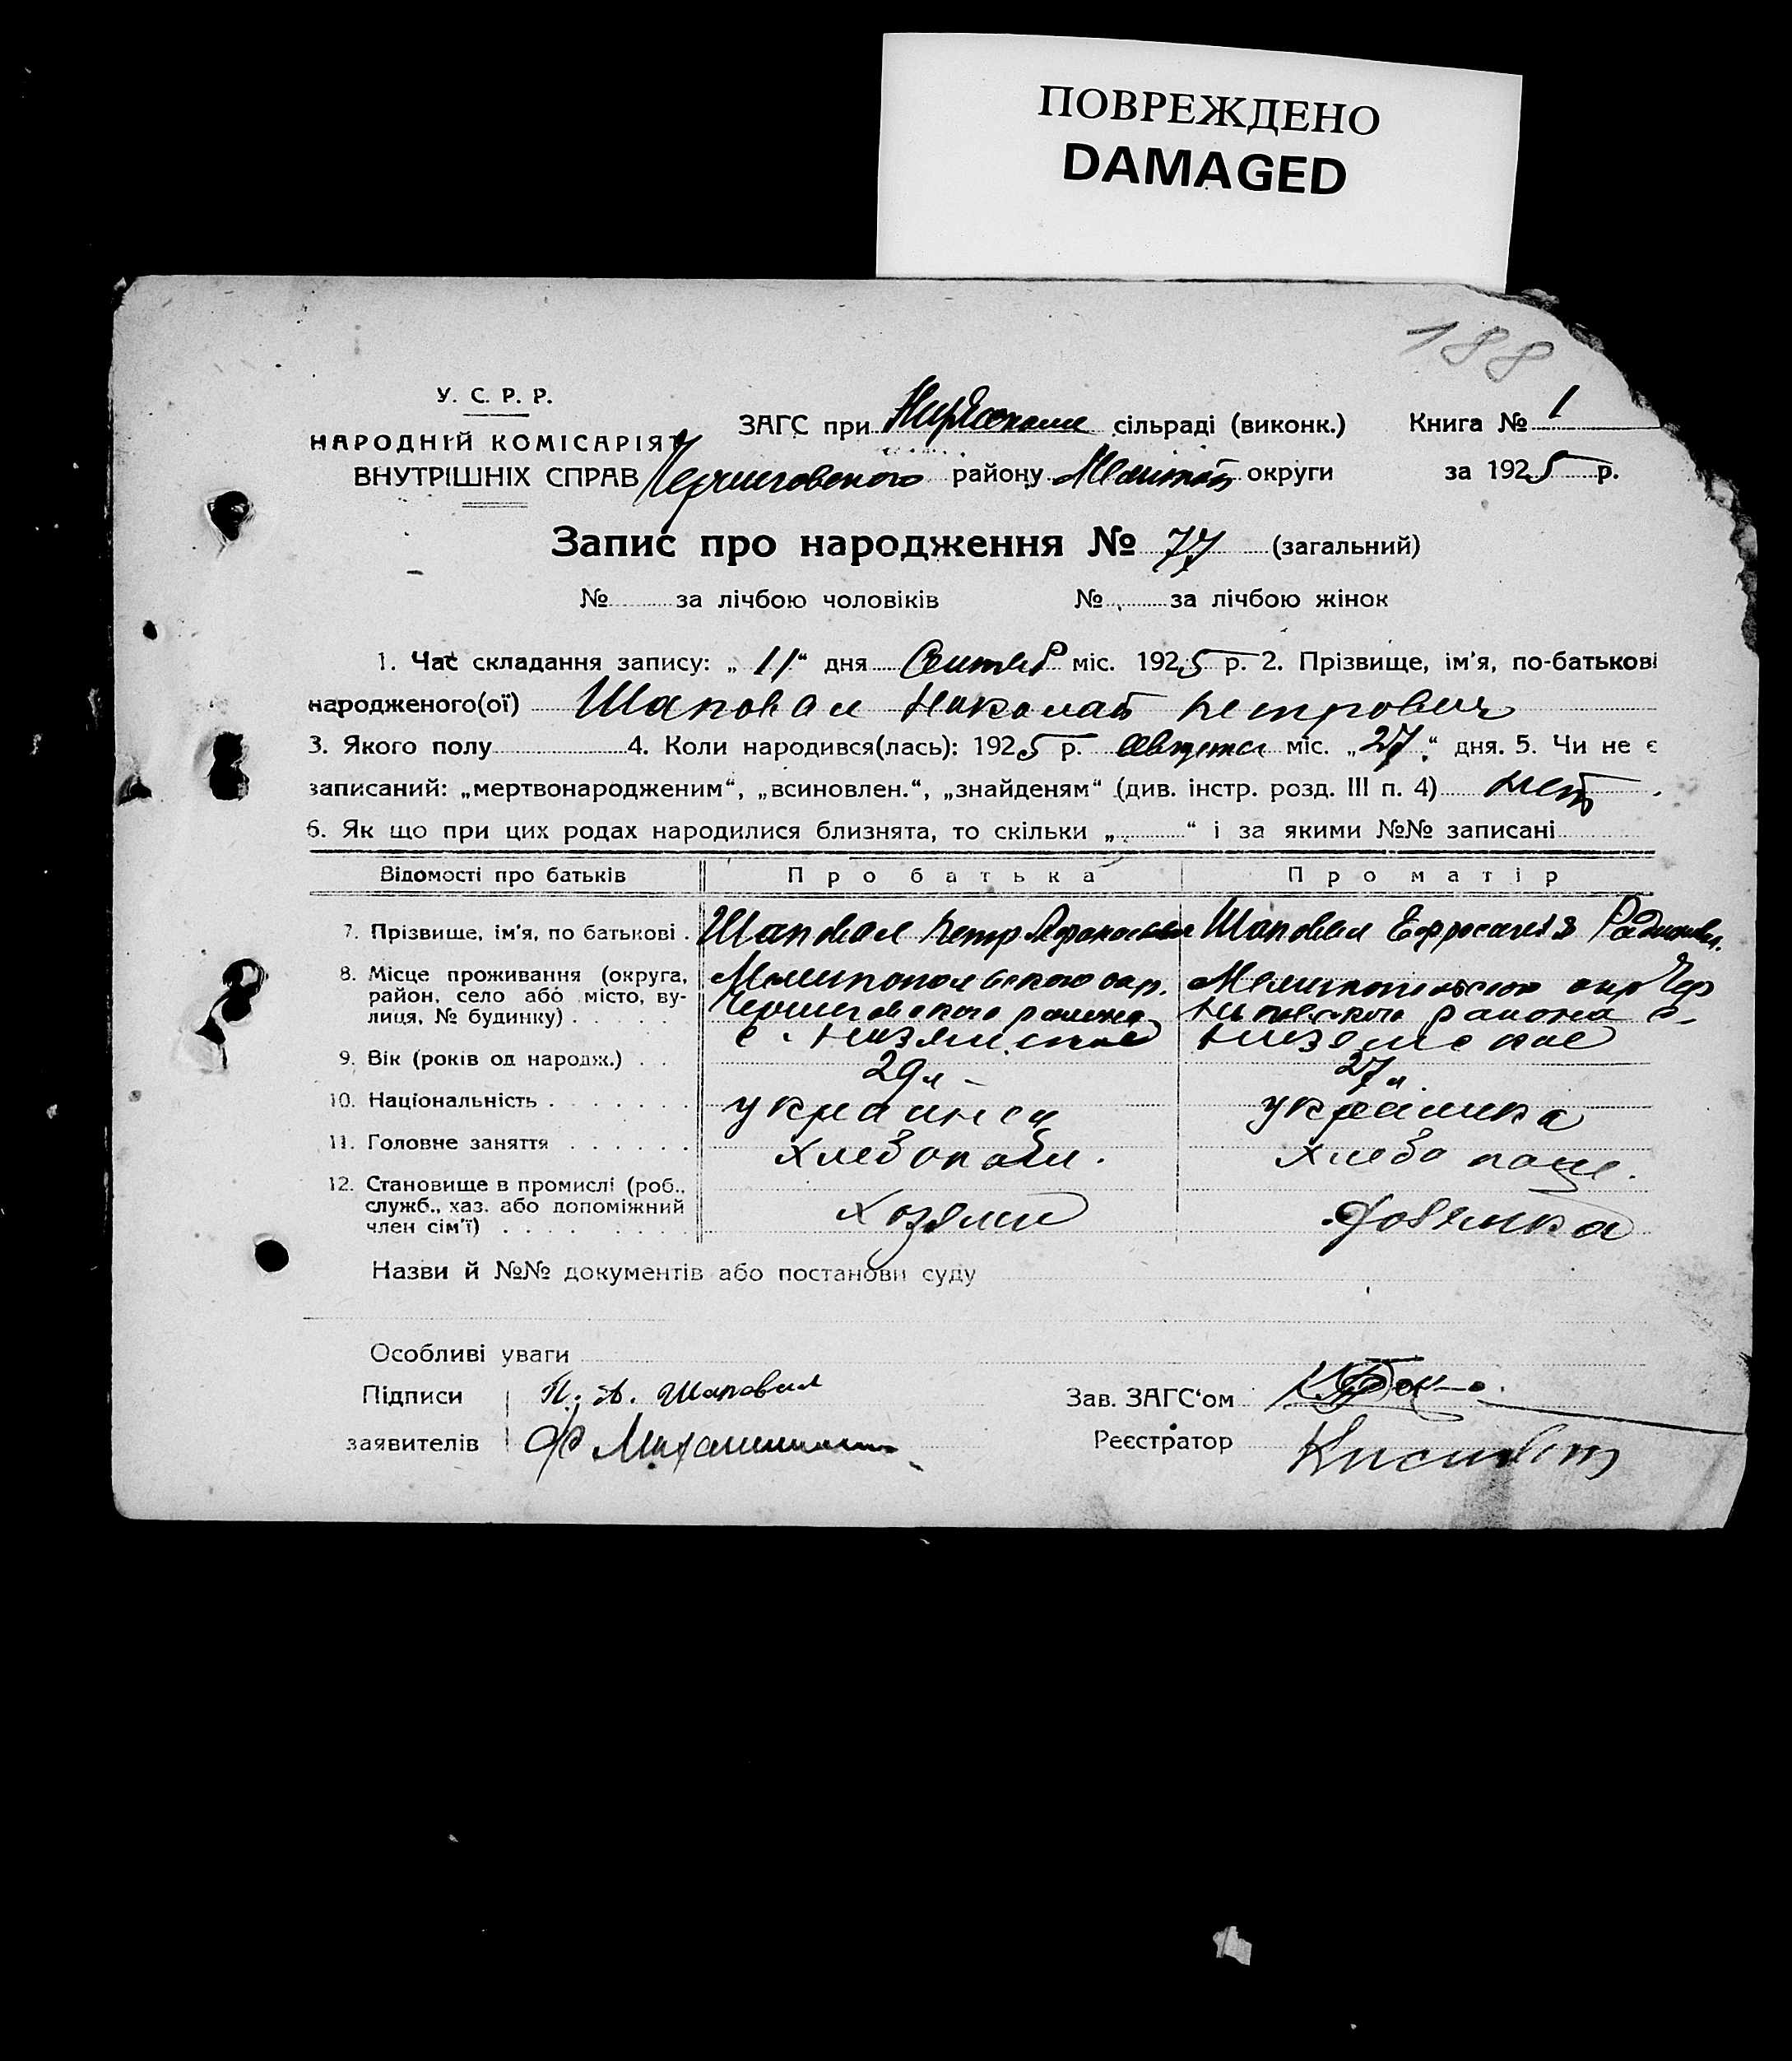 ПОВРЕЖДЕНО
DAMAGED
188
У. С. Р. Р.
НАРОДНІЙ КОМІСАРІЯТ
ВНУТРІШНІХ СПРАВ
ЗАГС при сільраді (виконк.) Книга № 1
Черниговского району Мелитоп округи за 1925 р.
Запис про народження № 77 (загальний)
№ за лічбою чоловіків № за лічбою жінок
1. Час складання запису: „ 11 “ дня Сентяб міс. 1925 р. 2. Прізвище, ім'я, по-батькові
народженого(ої) Шаповал Николай Петрович
3. Якого полу 4. Коли народився(лась): 1925 р. Августа міс. „ 27 “ дня. 5. Чи не є
записаний: „мертвонародженим“, „всиновлен.“, „знайденям“ (див. інстр. розд. III п. 4) нет
6. Як що при цих родах народилися близнята, то скільки „ “ і за якими №№ записані
Відомості про батьків Про батька Про матір
7. Прізвище, ім'я, по батькові . Шаповал Петр Шаповал Ефросиния
8. Місце проживання (округа, район, село або місто, вулиця, № будинку) . . . . . Мелитопольского окр. Черниговского района с. Мелитопольского окр Чер ниговского района с.
9. Вік (років од народж.) . . 29 л 27 л.
10. Національність . . . . . . . украинец украинка
11. Головне заняття . . . . . . хлебопаш. хлебопаш.
12. Становище в промислі (роб., служб., хаз. або допоміжний член сім'ї) . . . . . . . . хозяин
Назви й №№ документів або постанови суду
Особливі уваги
Підписи П. А. Шаповал Зав. ЗАГС'ом
заявителів Реєстратор